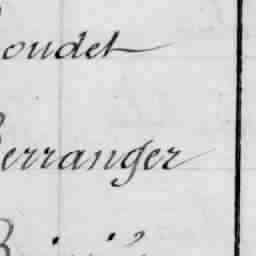 oudet
erranger